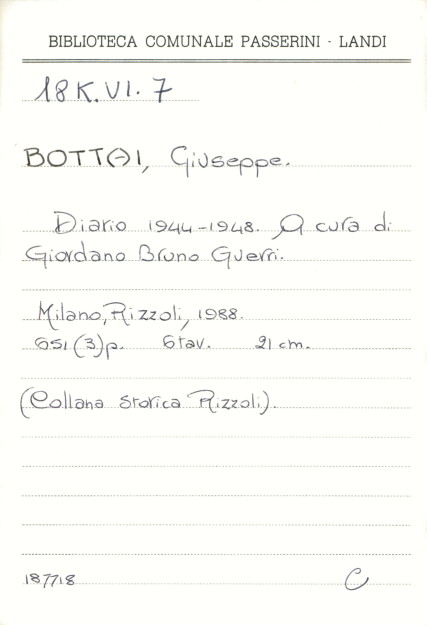 BIBLIOTECA COMUNALE PASSERINI - LANDI
18 K. VI. 7
BOTTAI, Giuseppe.
Diario 1944-1948. A cura di
Giordano Bruno Guerri.
Milano, Rizzoli, 1988.
651 (3) p. 6 tav. 21 cm.
(Collana Storica Rizzoli).
187718 C